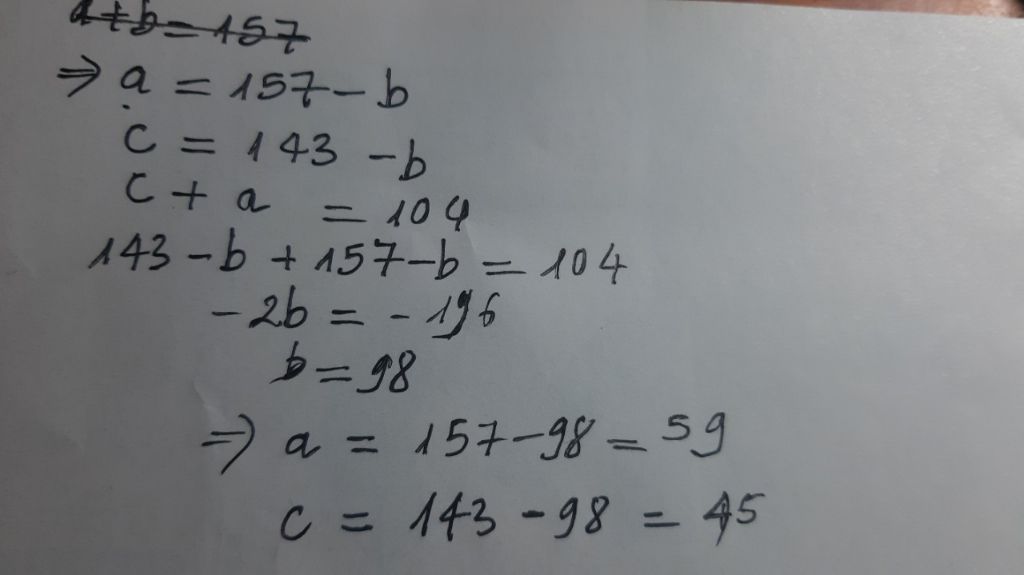 a+b=157
⇒ a = 157-b
c = 143 -b
c + a = 104
143-b+157-b=104
-2b = -196
b=98
⇒ a = 157-98=59
c = 143-98 = 45